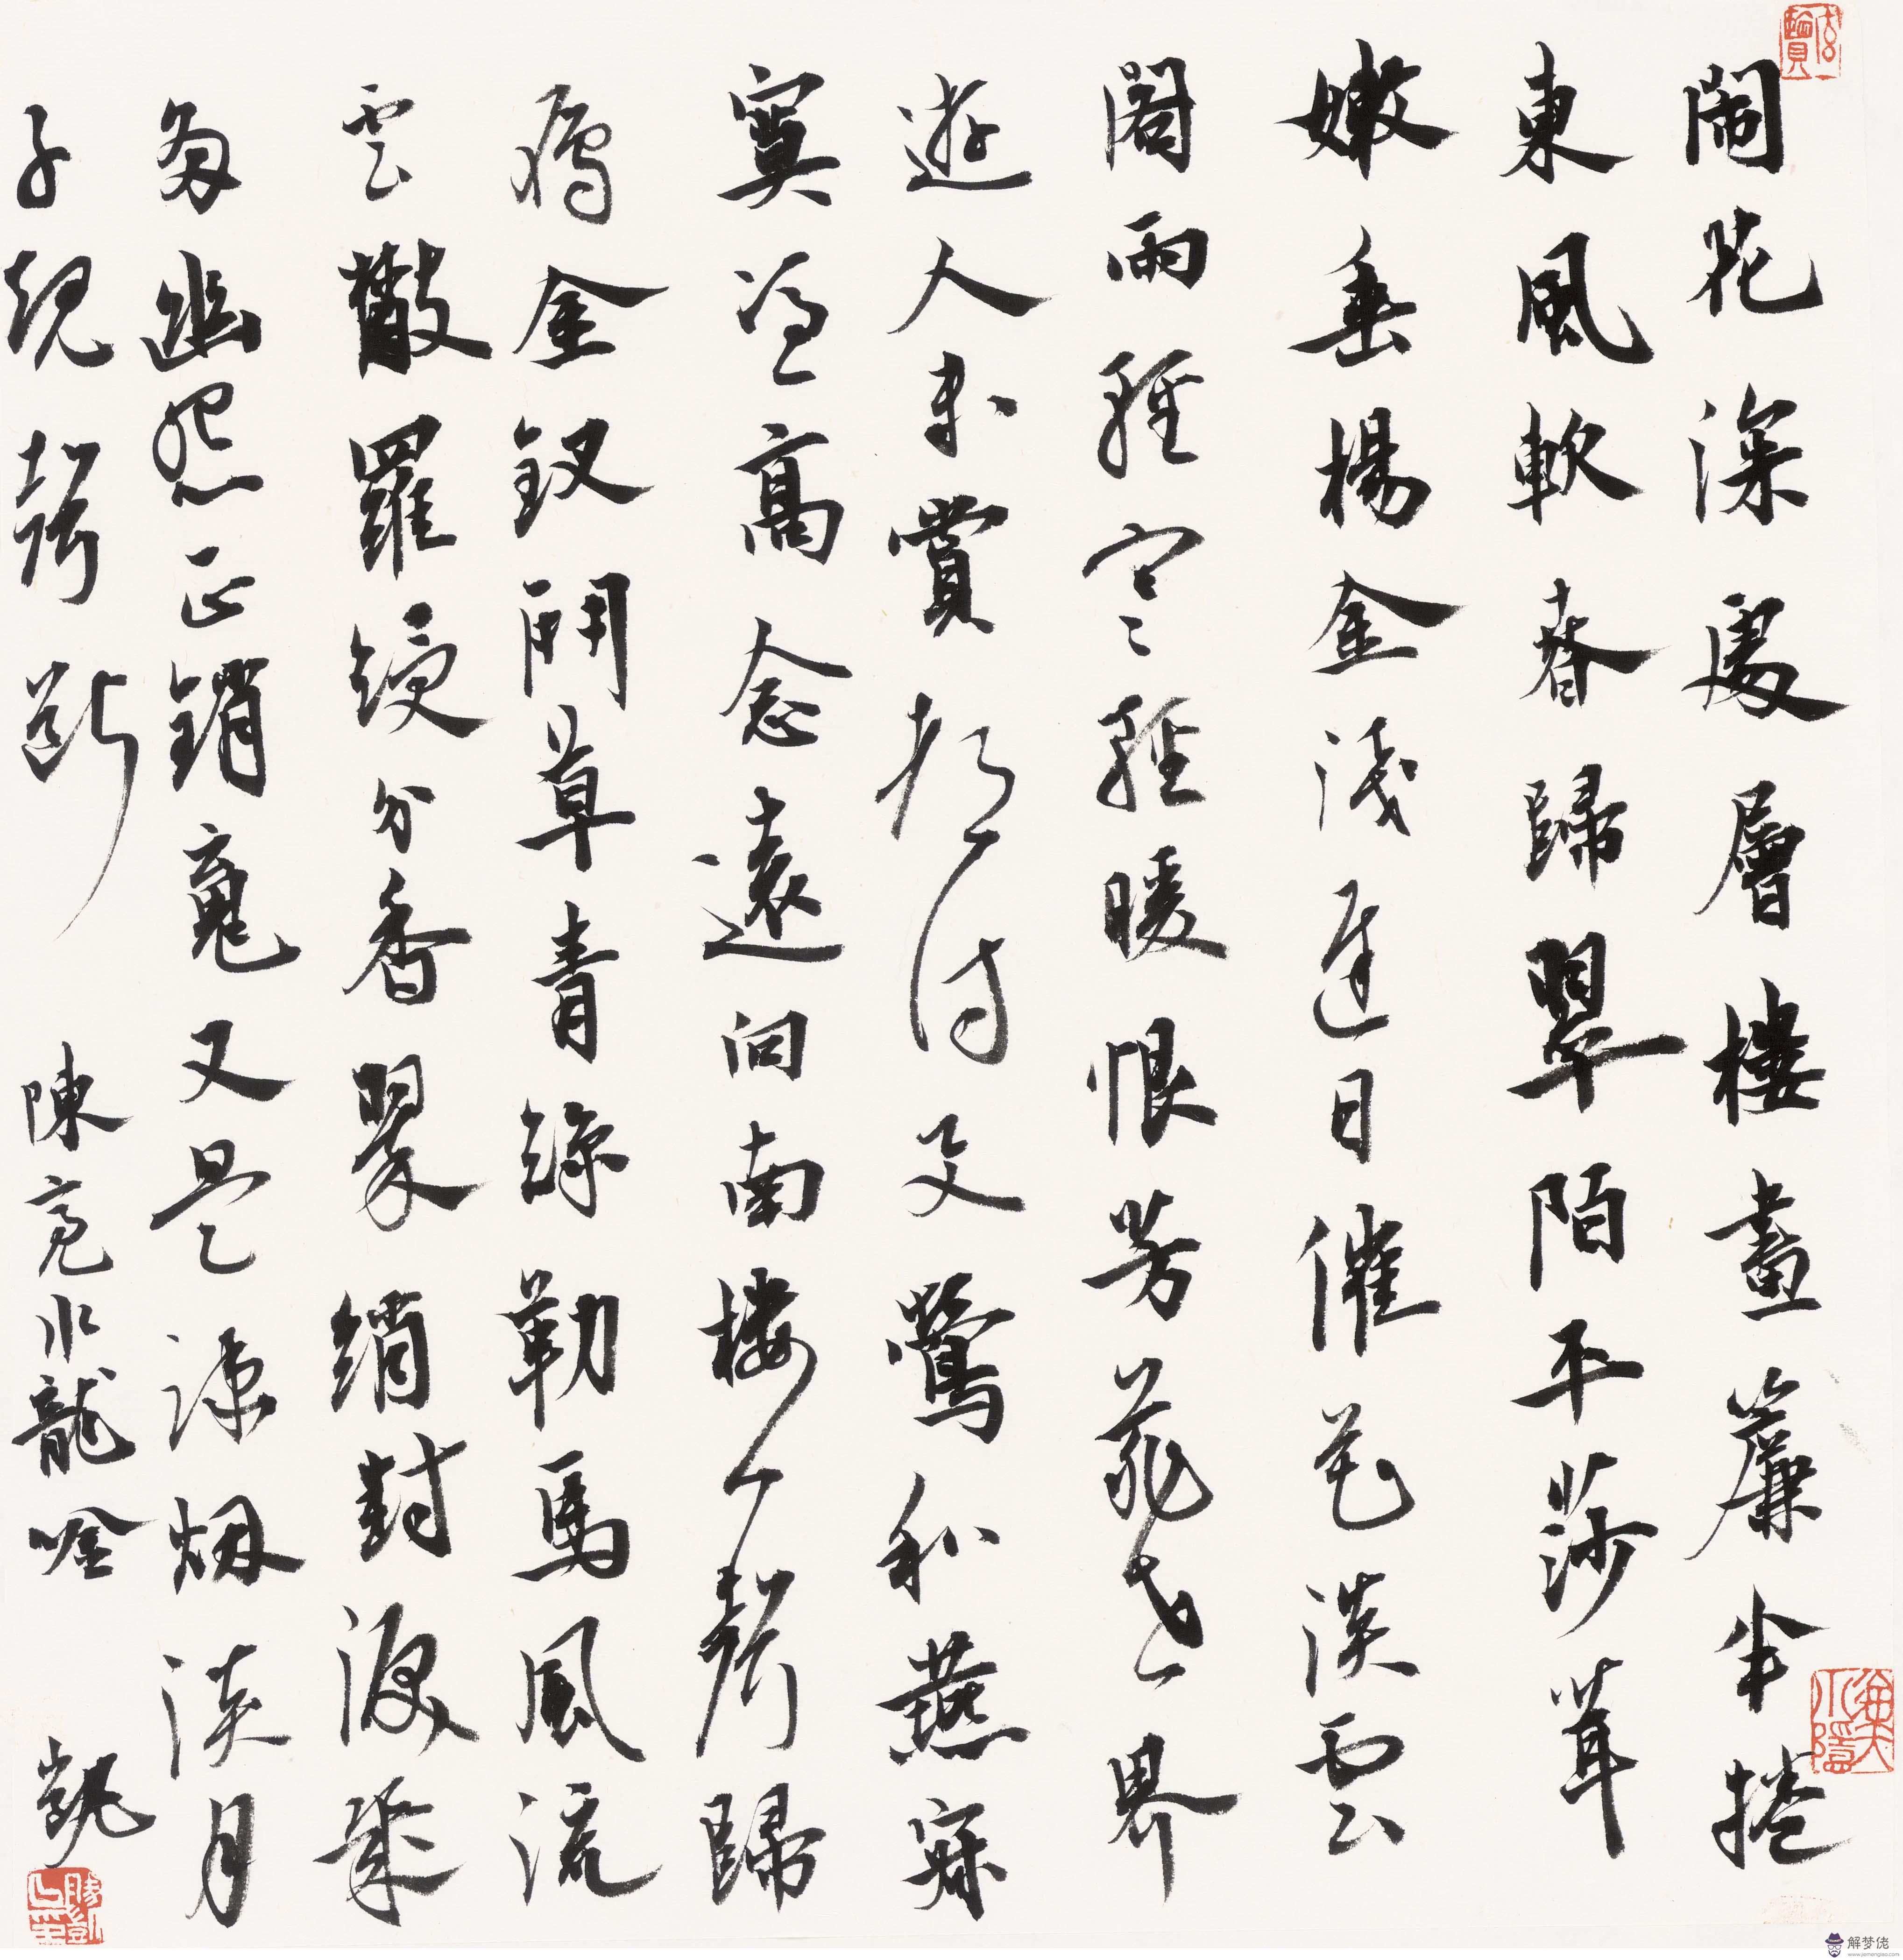 鬧花深處層樓畫簾半捲
東風軟春歸翠陌平莎茸
嫩垂楊金淺遲日催花淡雲
閣雨輕寒輕暖恨芳菲世界
遊人未賞都付与鶯和燕寂
寞憑高念遠向南樓一聲歸
鴈金釵鬥草青絲勒馬風流
雲散羅綬分香翠綃封淚幾
多幽怨正銷魂又是疎烟淡月
子規聲斷 陳亮水龍吟 凱
解梦佬